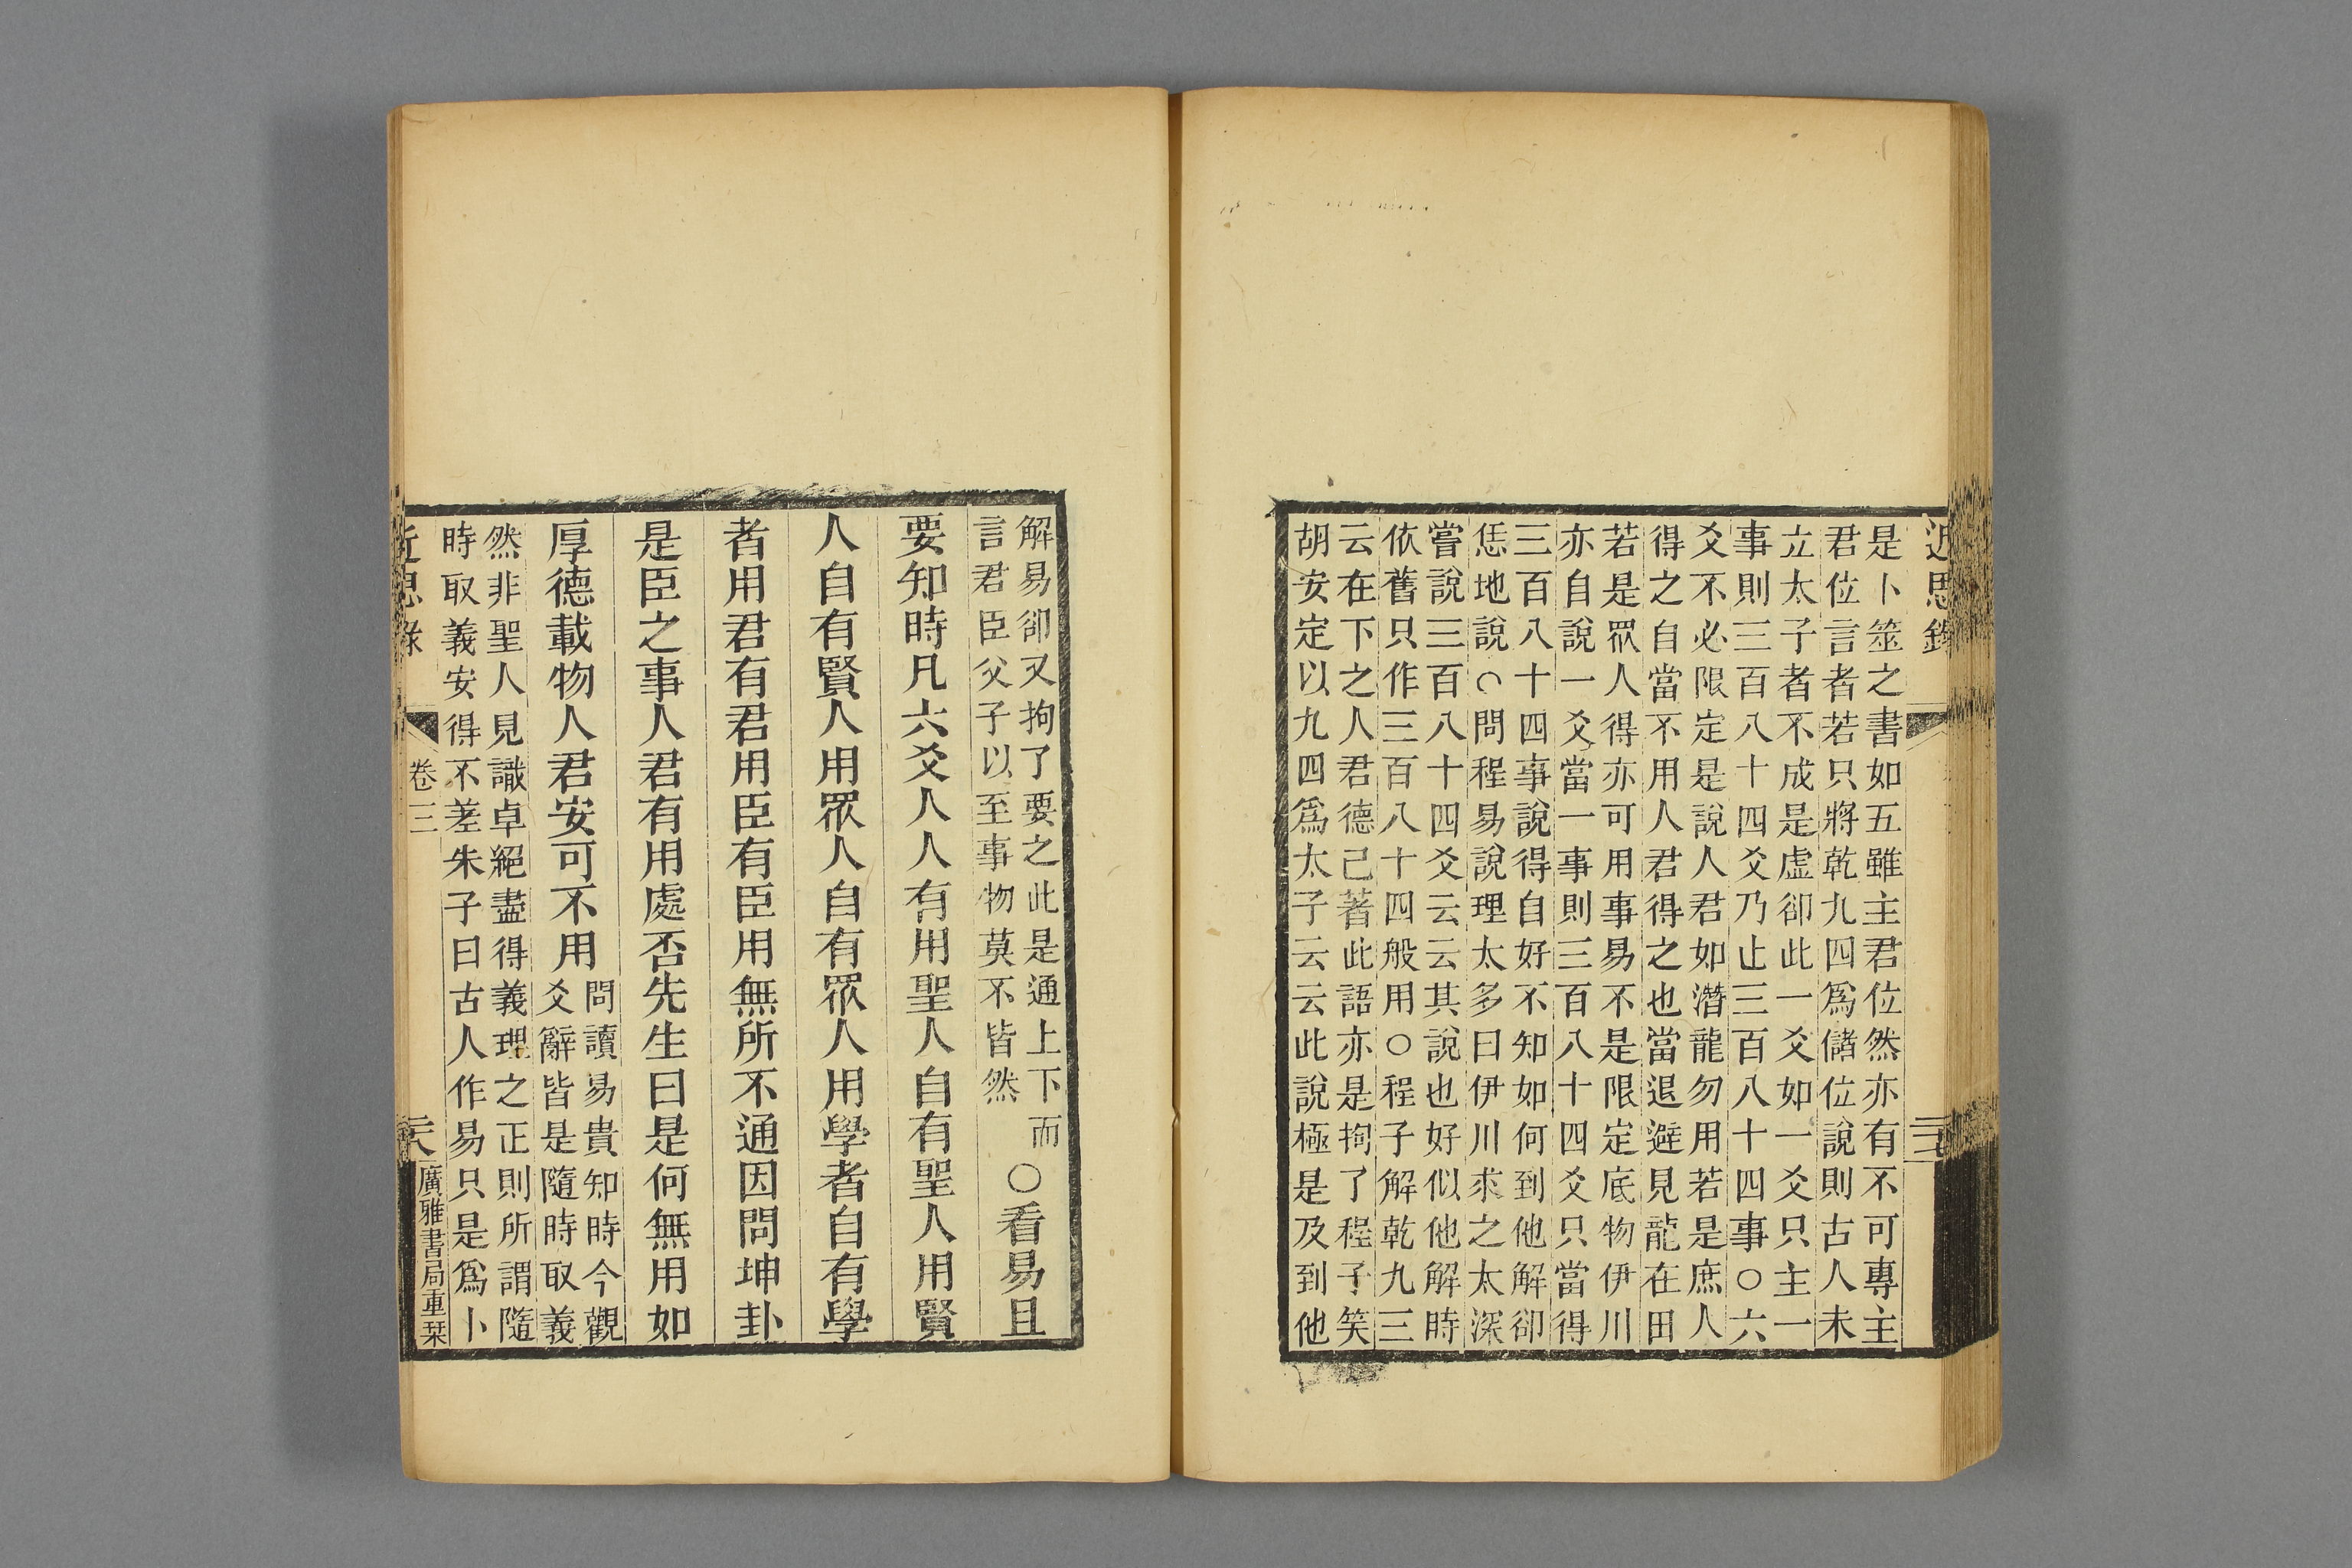 近思錄
是卜筮之書如五雖主君位然亦有不可專主
君位言者若只將乾九四爲儲位說則古人未
立太子者不成是虛卻此一爻如一爻只主一
事則三百八十四爻乃止三百八十四事○六
爻不必限定是說人君如潛龍勿用若是庶人
得之自當不用人君得之也當退避見龍在田
若是眾人得亦可用事易不是限定底物伊川
亦自說一爻當一事則三百八十四爻只當得
三百八十四事說得自好不知如何到他解卻
恁地說○問程易說理太多曰伊川求之太深
嘗說三百八十四爻云云其說也好似他解時
依舊只作三百八十四般用○程子解乾九三
云在下之人君德已著此語亦是拘了程子笑
胡安定以九四爲太子云云此說極是及到他
解易卻又拘了要之此是通上下而
言君臣父子以至事物莫不皆然
○看易且
要知時凡六爻人人有用聖人自有聖人用賢
人自有賢人用眾人自有眾人用學者自有學
者用君有君用臣有臣用無所不通因問坤卦
是臣之事人君有用處否先生曰是何無用如
厚德載物人君安可不用
問讀易貴知時今觀
爻辭皆是隨時取義
然非聖人見識卓絕盡得義理之正則所謂隨
時取義安得不差朱子曰古人作易只是爲卜
近思錄 卷三 廣雅書局重栞